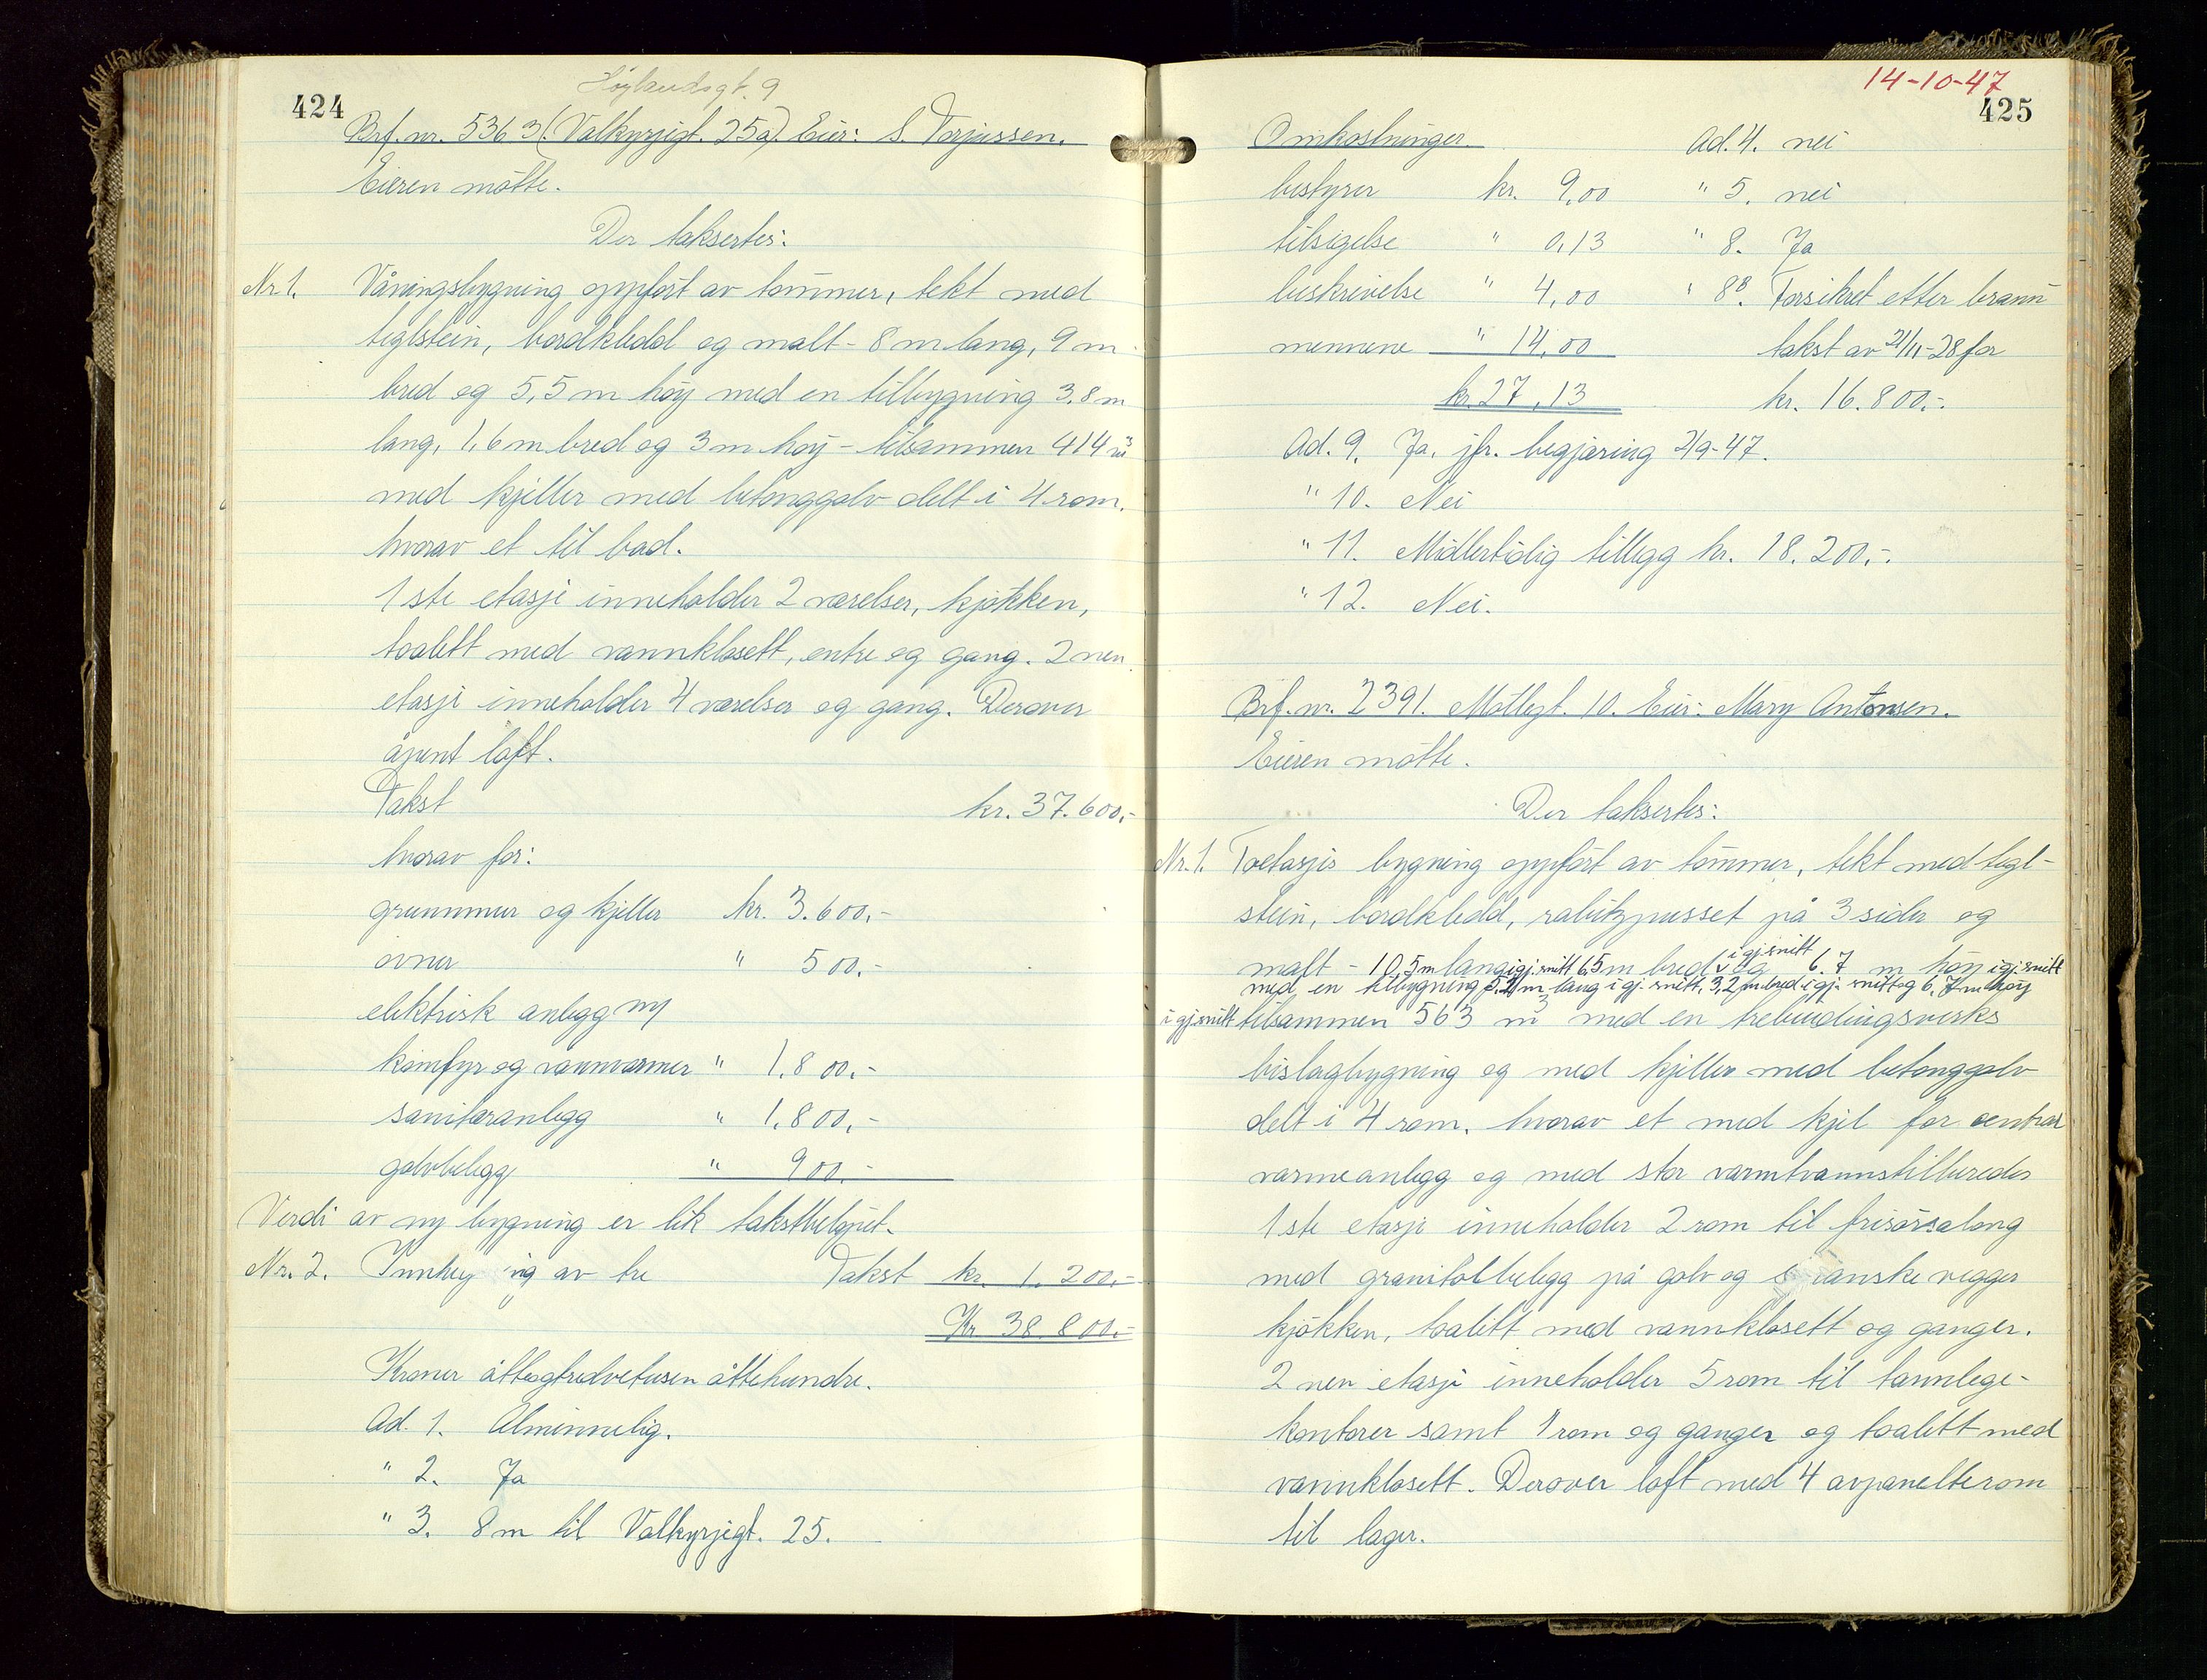 424
Höylandsgt. 9
Brf. nr. 5363 (Valkyrjegt. 25a). Eier: S. Torjussen.
Eieren møtte.
Der taksertes:
Nr. 1. Våningsbygning oppført av tømmer, tekt med
teglstein, bordkledd og malt - 8 m lang, 9 m
bred og 5,5 m høy med en tilbygning 3,8 m
lang, 1,6 m bred og 3 m høy - tilsammen 414 m³
med kjeller med betonggolv delt i 4 rom,
hvorav et til bad.
1ste etasje inneholder 2 værelser, kjøkken,
toalett med vannklosett, entre og gang. 2nen
etasje inneholder 4 værelser og gang. Derover
åpent loft.
Takst kr. 37.600,-
hvorav for:
grunnmur og kjeller kr. 3.600,-
ovner " 500,-
elektrisk anlegg m/
komfyr og vannvarmer " 1.800,-
sanitæranlegg " 1.800,-
golvbelegg " 900,-
Verdi av ny bygning er lik takstbeløpet.
Nr. 2. Innhegning av tre Takst kr. 1.200,-
Kr 38.800,-
Kroner åtteogtredvetusen åttehundre.
Ad. 1. Alminnelig.
" 2. Ja
" 3. 8 m til Valkyrjegt. 25.
14-10-47
425
Omkostninger Ad. 4. nei
bestyrer kr. 9,00 " 5. nei
tilsigelse " 0,13 " 8. Ja
beskrivelse " 4,00 " 8B. Forsikret etter brann
mennene " 14,00 takst av 21/11-28 for
kr. 27,13 kr. 16.800,-
Ad. 9. Ja, jfr. begjæring 2/9-47.
" 10. Nei
" 11. Midlertidig tillegg kr. 18.200,-
" 12. Nei.
Brf. nr. 2391. Møllegt. 10. Eier: Mary Antonsen.
Eieren møtte.
Der taksertes:
Nr. 1. Toetasjes bygning oppført av tømmer, tekt med tegl-
stein, bordkledd, rabitzpusset på 3 sider og
malt - 10,5 m lang i gj.snitt 6,5 m bred i gj.snitt og 6,7 m høy i gj.snitt
med en tilbygning 5,21 m lang i gj. snitt, 3,2 m bred i gj. snitt og 6,7 m høy
i gj.snitt tilsammen 563 m³ med en trebindingsverks
bislagbygning og med kjeller med betonggolv
delt i 4 rom, hvorav et med kjel for sentral
varmeanlegg og med stor varmtvannstilbereder
1ste etasje inneholder 2 rom til frisørsalong
med granitolbelegg på golv og vegger
kjøkken, toalett med vannklosett og ganger.
2nen etasje inneholder 5 rom til tannlege-
kontorer samt 1 rom og ganger og toalett med
vannklosett. Derover loft med 4 avpanelte rom
til lager.